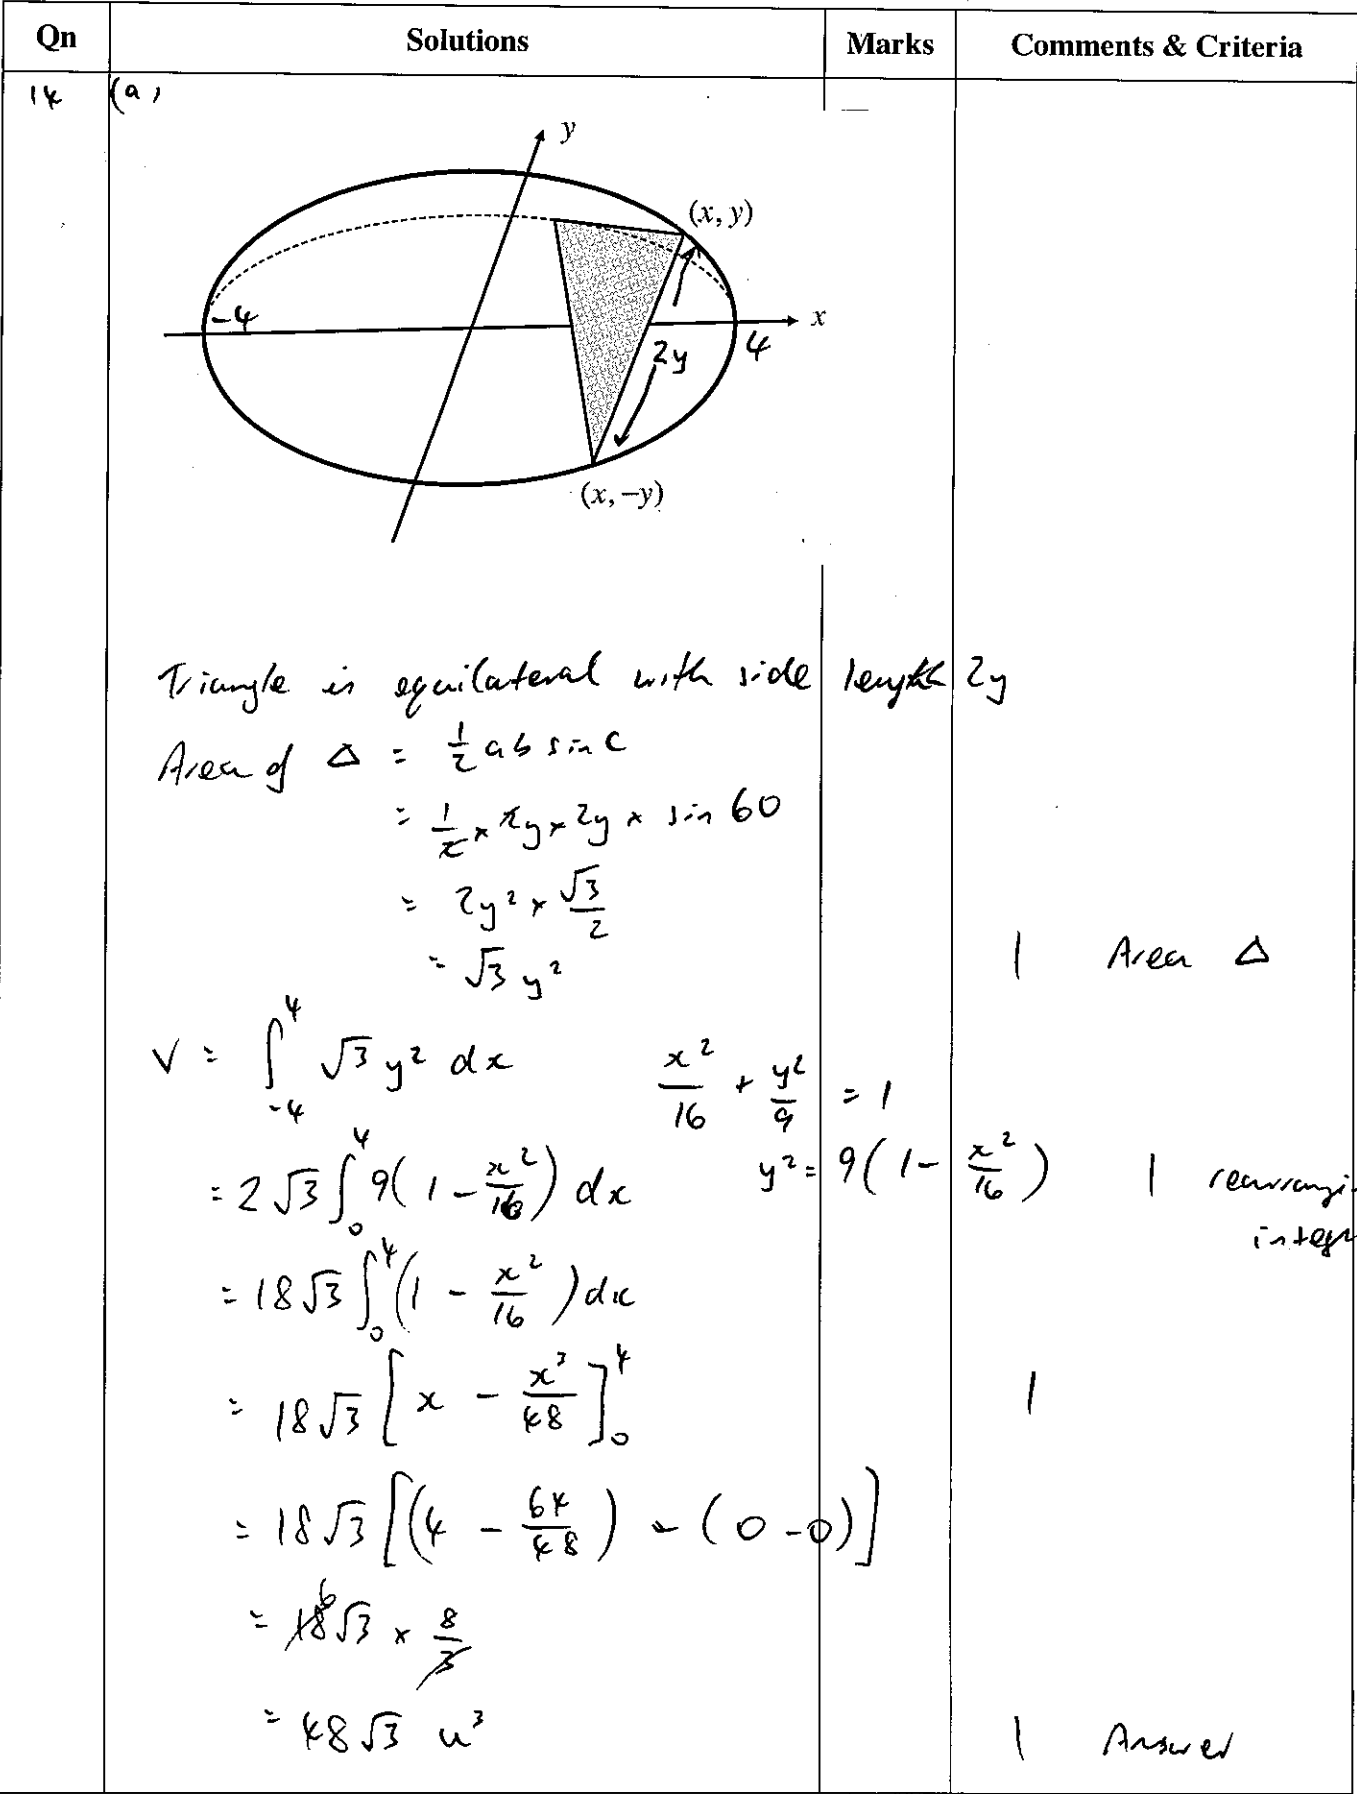 Qn Solutions Marks Comments & Criteria
14 (a)
y
(x, y)
-4 x
2y 4
(x, -y)
Triangle is equilateral with side length 2y
Area of Δ = 1/2 ab sin C
= 1/2 × 2y × 2y × sin 60
= 2y² × √3/2
= √3 y² 1 Area Δ
V = ∫_{-4}^{4} √3 y² dx x²/16 + y²/9 = 1
= 2√3 ∫_0^4 9(1 - x²/16) dx y² = 9(1 - x²/16) 1
= 18√3 ∫_0^4 (1 - x²/16) dx
= 18√3 [x - x³/48]_0^4 1
= 18√3 [(4 - 64/48) - (0 - 0)]
= 18 6 √3 × 8/3
= 48√3 u³ 1 Answer